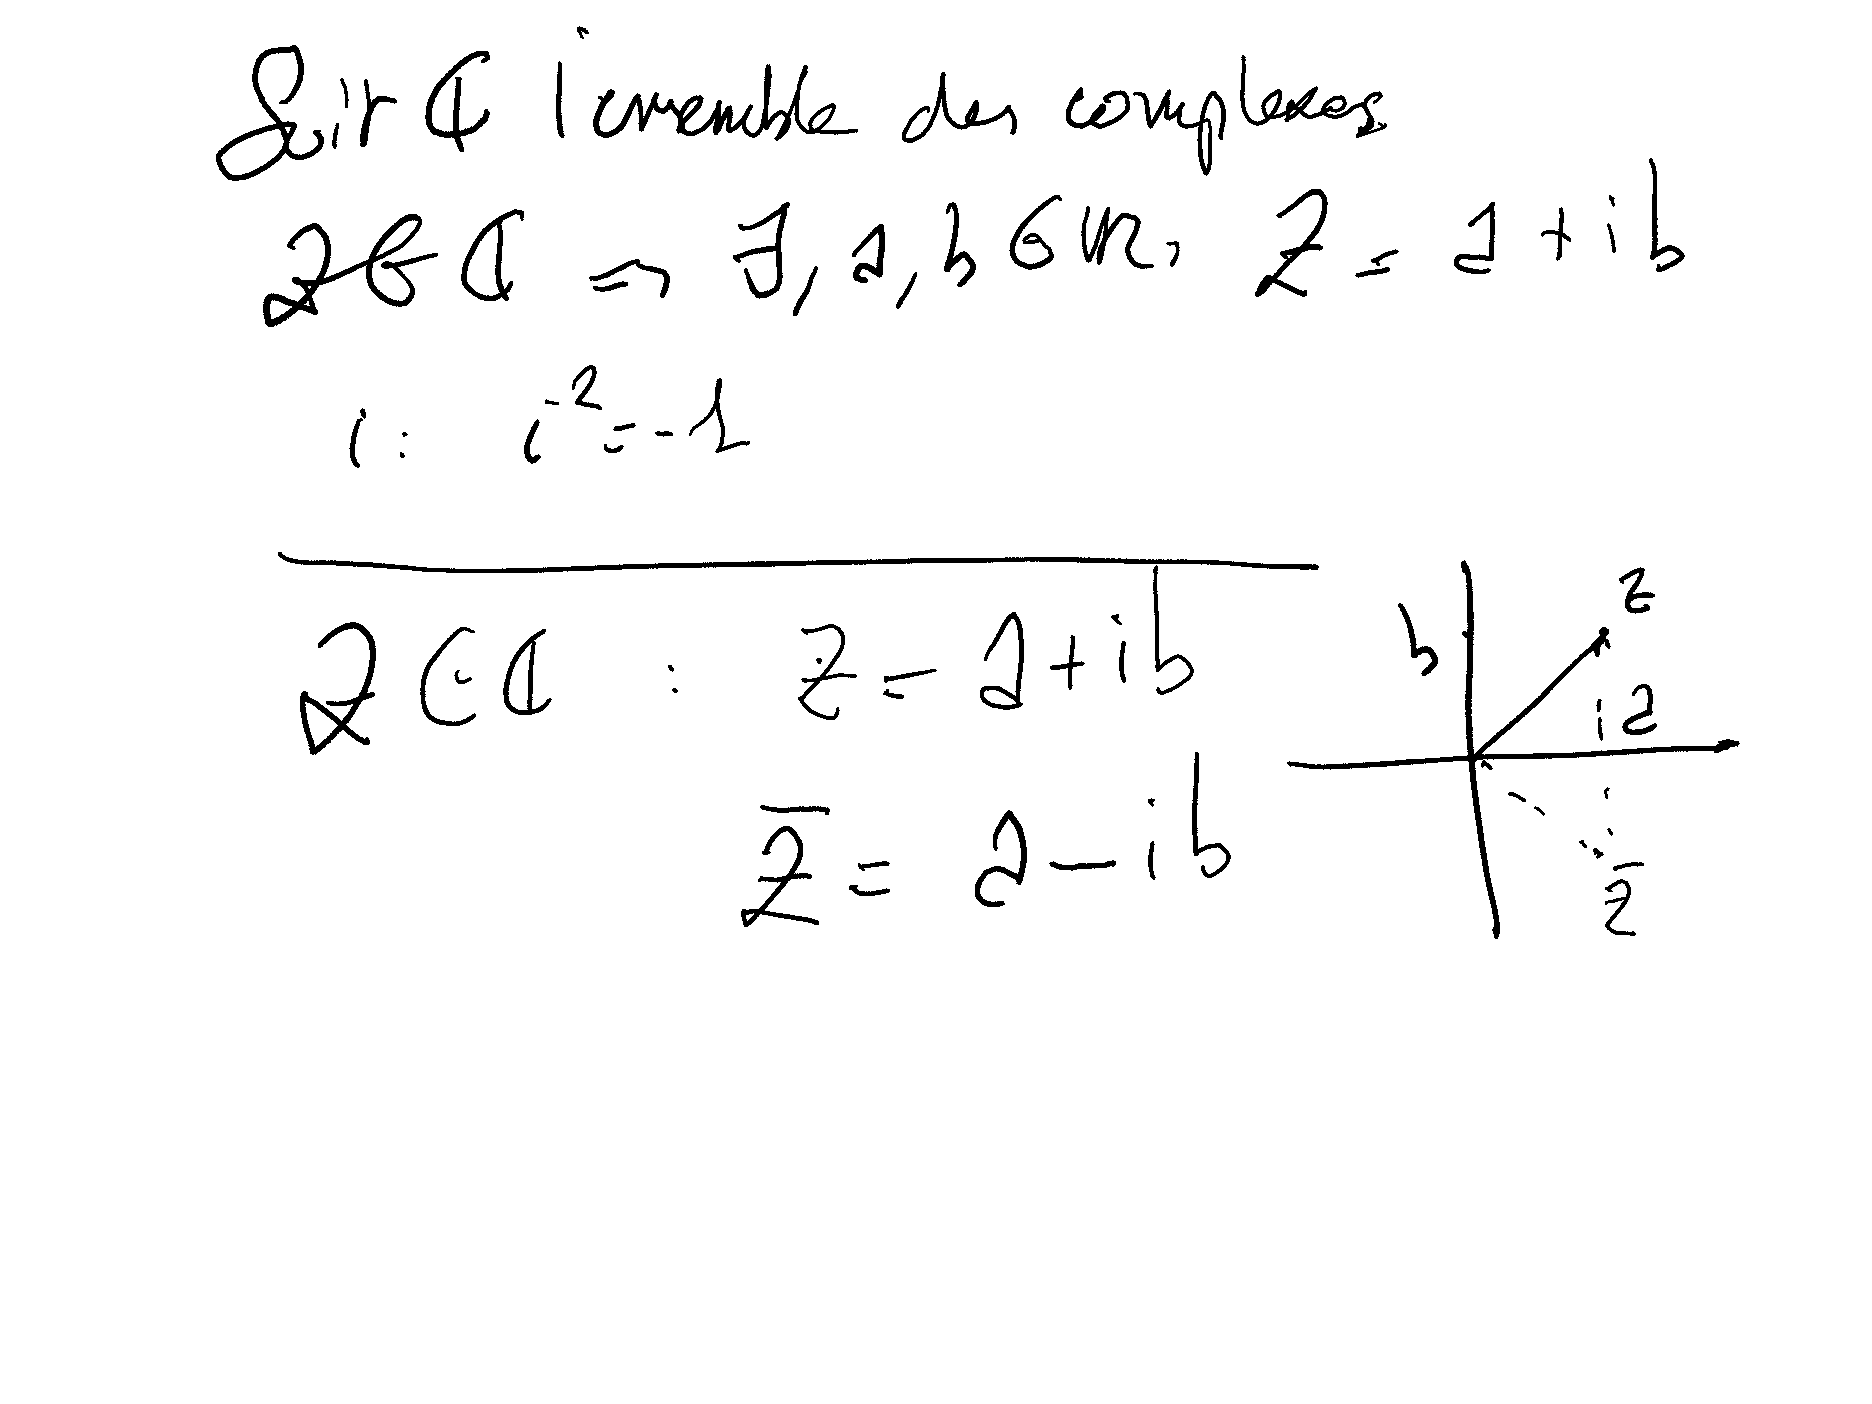 Soit ℂ l'ensemble des complexes
Z ∈ ℂ ⇒ ∃, a, b ∈ ℝ, Z = a + ib
i : i² = -1
Z ∈ ℂ : Z = a + ib
Z̄ = a - ib
z
b
a
z̄